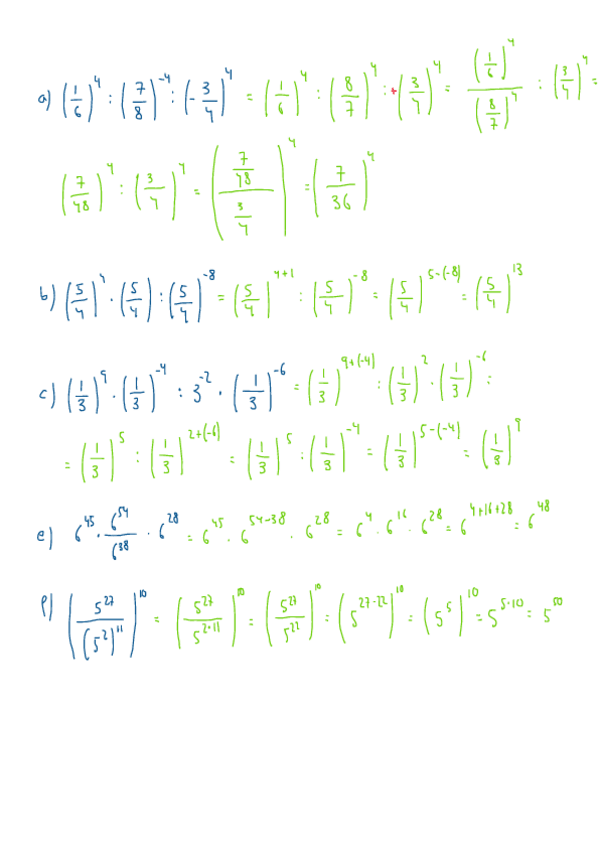 a) (1/6)^4 : (7/8)^-4 : (-3/4)^4 = (1/6)^4 : (8/7)^4 : +(3/4)^4 = (1/6)^4/(8/7)^4 : (3/4)^4 =
(7/48)^4 : (3/4)^4 = ((7/48)/(3/4))^4 = (7/36)^4
b) (5/4)^4 · (5/4) : (5/4)^-8 = (5/4)^4+1 : (5/4)^-8 = (5/4)^5-(-8) = (5/4)^13
c) (1/3)^9 · (1/3)^-4 : 3^-2 · (1/3)^-6 = (1/3)^9+(-4) : (1/3)^2 · (1/3)^-6 =
= (1/3)^5 : (1/3)^2+(-6) = (1/3)^5 : (1/3)^-4 = (1/3)^5-(-4) = (1/3)^9
e) 6^45 · 6^54/6^38 · 6^28 = 6^45 · 6^54-38 · 6^28 = 6^4 · 6^16 · 6^28 = 6^4+16+28 = 6^48
f) (5^27/(5^2)^11)^10 = (5^27/5^2·11)^10 = (5^27/5^22)^10 = (5^27-22)^10 = (5^5)^10 = 5^5·10 = 5^50